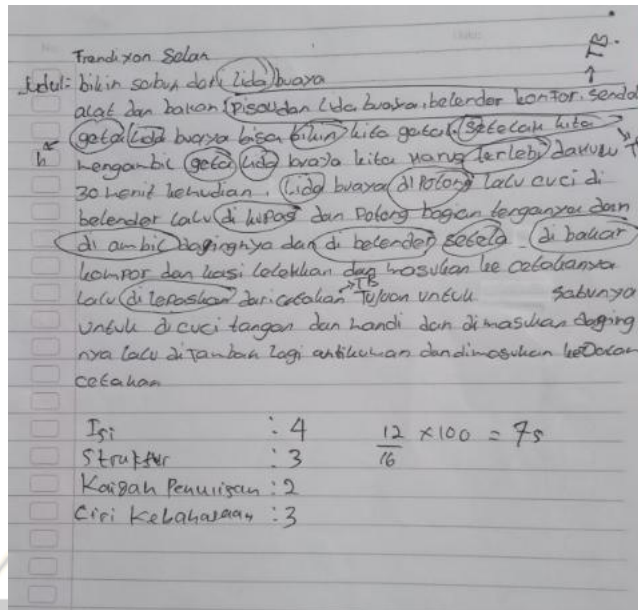 Frandixon Selan
TB.
Judul: bikin sabun dari lida buaya
alat dan bahan (pisau dan lida buaya, belender kompor, sendo
geta lida buaya bisa bikin kita gatal. setelah kita
h mengambil geta lida buaya kita harus terlebi dahulu T
30 menit kemudian. Lida buaya di potong lalu cuci di
belender lalu di kupas dan potong bagian tenganya dan
di ambil dagingnya dan di belender setela di bakar
kompor dan kasi lelehkan dan masukan ke cetakanya
Lalu di lepaskan dari cetakan TB Tujuan untuk sabunya
untuk di cuci tangan dan mandi dan di masukan daging
nya lalu di tambah lagi antikuman dan dimasukan keDalam
cetakan
Isi : 4 12/16 x 100 = 75
Struktur : 3
Kaidah Penulisan : 2
Ciri Kebahasaan : 3